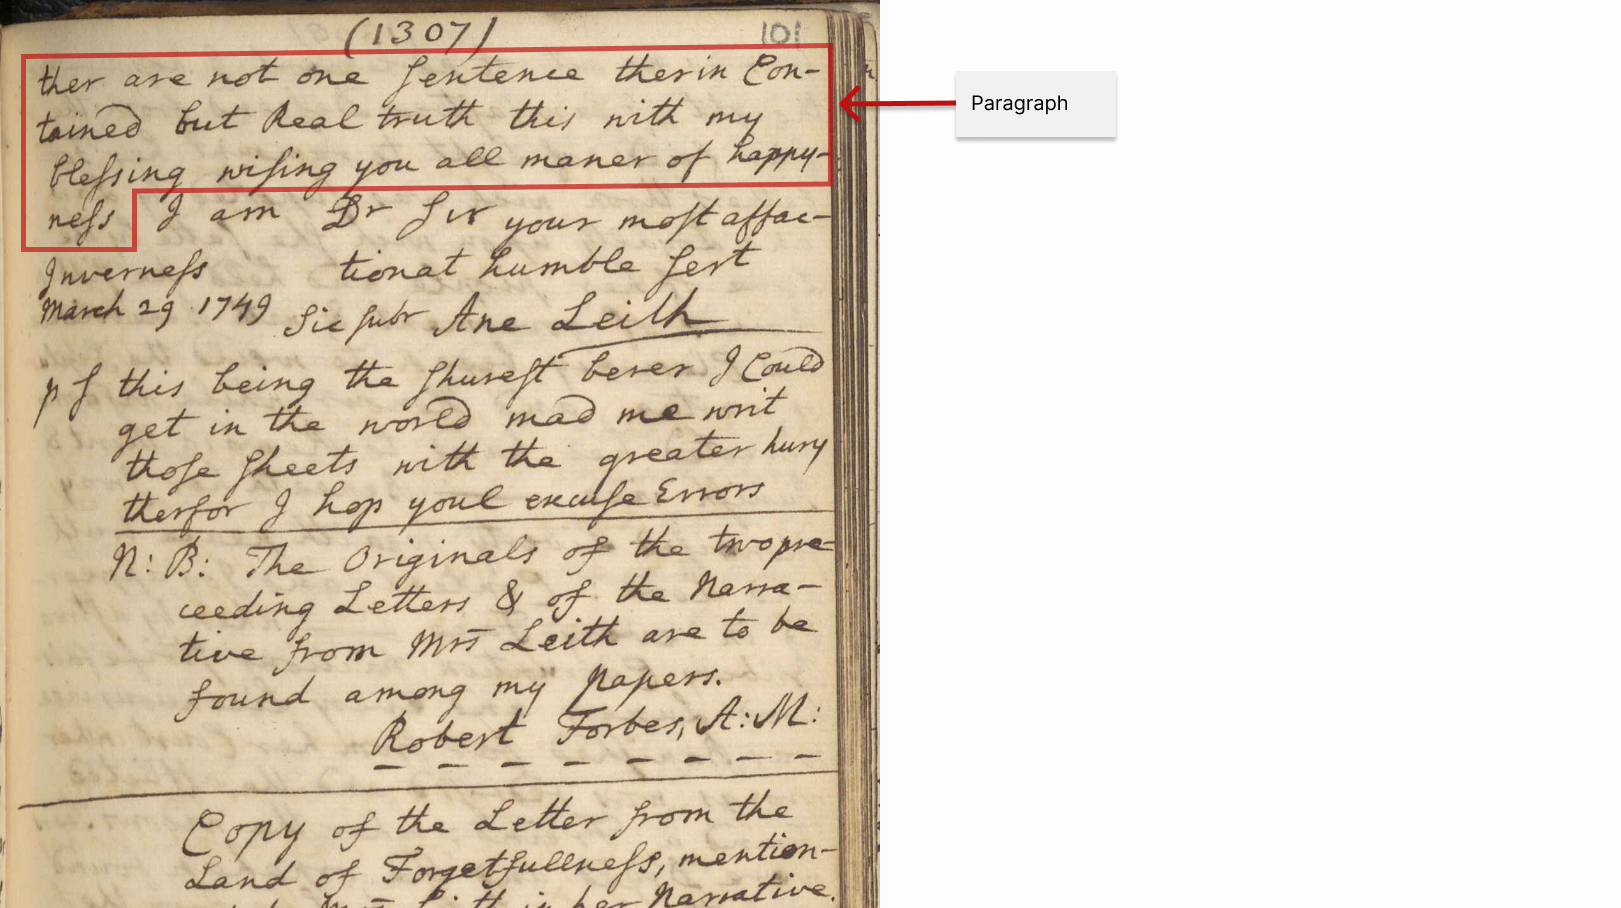 (1307)
101
ther are not one ſentence therin Con-
tained but Real truth this with my
bleſsing wiſing you all maner of happy-
neſs I am Dr Sir your moſt affac-
Inverneſs tionat humble ſert
March 29 1749 Sic ſubr Ane Leith
p S this being the ſhureſt berer I Could
get in the world mad me writ
thoſe ſheets with the greater hury
therfor I hop youl excuſe Errors
N: B: The Originals of the two pre-
ceeding Letters & of the Narra-
tive from Mrs Leith are to be
found among my Papers.
Robert Forbes, A: M:
Copy of the Letter from the
Land of Forgetfullneſs, mention-
Mrs Leith in her Narrative.
Paragraph